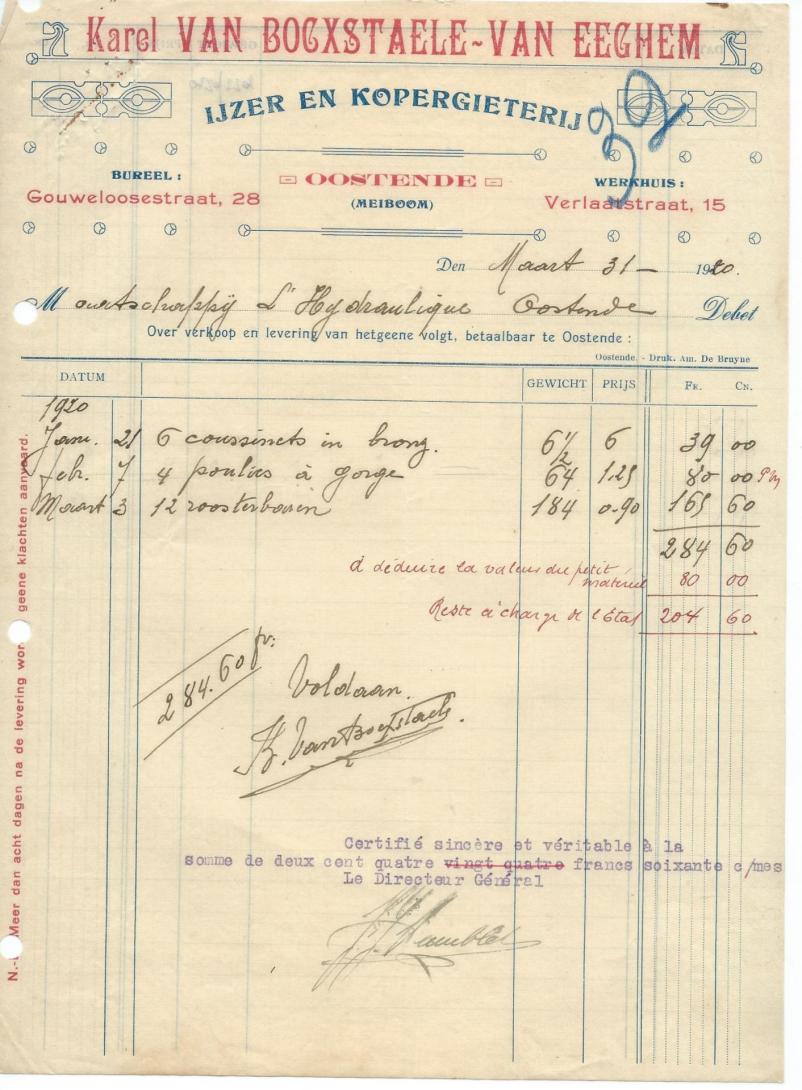 Karel VAN BOCXSTAELE-VAN EEGHEM
IJZER EN KOPERGIETERIJ
39
BUREEL :
Gouweloosestraat, 28
OOSTENDE
(MEIBOOM)
WERKHUIS :
Verlaatstraat, 15
Den Maart 31 - 1920.
Maatschappij L'Hydraulique Oostende Debet
Over verkoop en levering van hetgeene volgt, betaalbaar te Oostende :
Oostende. - Druk. Am. De Bruyne
DATUM GEWICHT PRIJS FR. CN.
1920
Janu. 21 6 coussinets in bronz. 6 1/2 6 39 00
Febr. 7 4 poulies à gorge 64 1.25 80 00 PM
Maart 3 12 roosterbaren 184 0.90 165 60
284 60
à déduire la valeur du petit matériel 80 00
Reste à charge de l'Etat 204 60
284.60 fr:
Voldaan.
K. Van Bocxstaele.
Certifié sincère et véritable à la
somme de deux cent quatre vingt quatre francs soixante c/mes
Le Directeur Général
N.- Meer dan acht dagen na de levering wor geene klachten aanvaard.